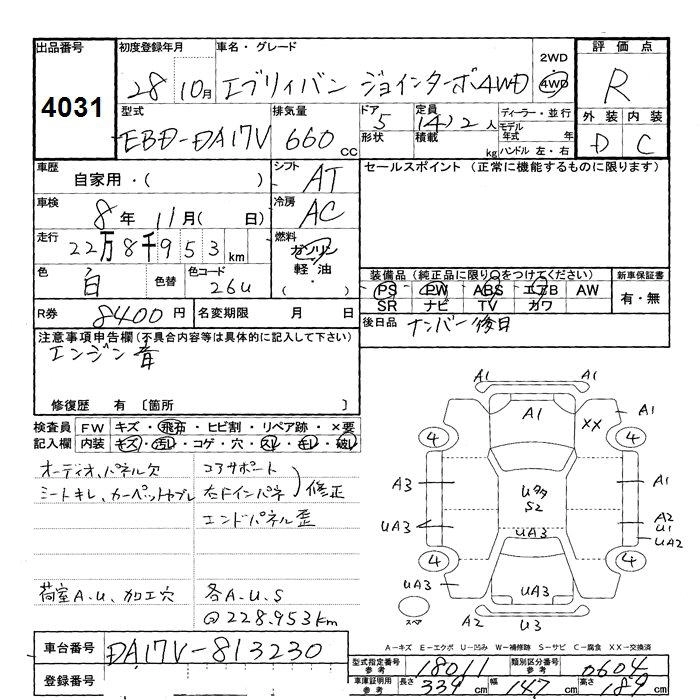 出品番号
4031
初度登録年月
28 10月
車名・グレード
エブリィバン ジョインターボ4WD
2WD
4WD
評価点
R
型式
EBD-DA17V
排気量
660 cc
ドア 5
形状
定員 (4)2 人
積載 kg
ディーラー・並行
モデル年式 年
ハンドル 左・右
外装 内装
D C
車歴
自家用・( )
シフト
AT
セールスポイント (正常に機能するものに限ります)
車検
8年 11月( 日)
冷房
AC
走行
22万8千953km
燃料
ガソリン
軽油
・( )
色
白
色替
色コード
26U
装備品 (純正品に限り○をつけてください)
PS PW ABS エアB AW
SR ナビ TV カワ
新車保証書
有・無
R券
8400円
名変期限 月 日
後日品
ナンバー後日
注意事項申告欄(不具合内容等は具体的に記入して下さい)
エンジン音
修復歴 有 〔箇所 〕
検査員記入欄
FW キズ・飛石・ヒビ割・リペア跡・×要
内装 キズ・汚レ・コゲ・穴・スレ・キレ・破レ
オーディオ、パネル欠
シートキレ、カーペットヤブレ
コアサポート
右Fインパネ
修正
エンドパネル歪
荷室A.U、加工穴
各A.U.S
@228.953km
A1
A1
A1
XX
A1
4
4
A3
UタタS2
A1
UA3
A2
U1
UA2
UA3
4
4
UA3
UA3
スペ
A2
U3
A-キズ E-エクボ U-凹み W-補修跡 S-サビ C-腐食 XX-交換済
車台番号
DA17V-813230
登録番号
型式指定番号 参考
18011
類別区分番号 参考
0604
車庫証明用 参考
長さ 339cm
幅 147cm
高さ 189cm